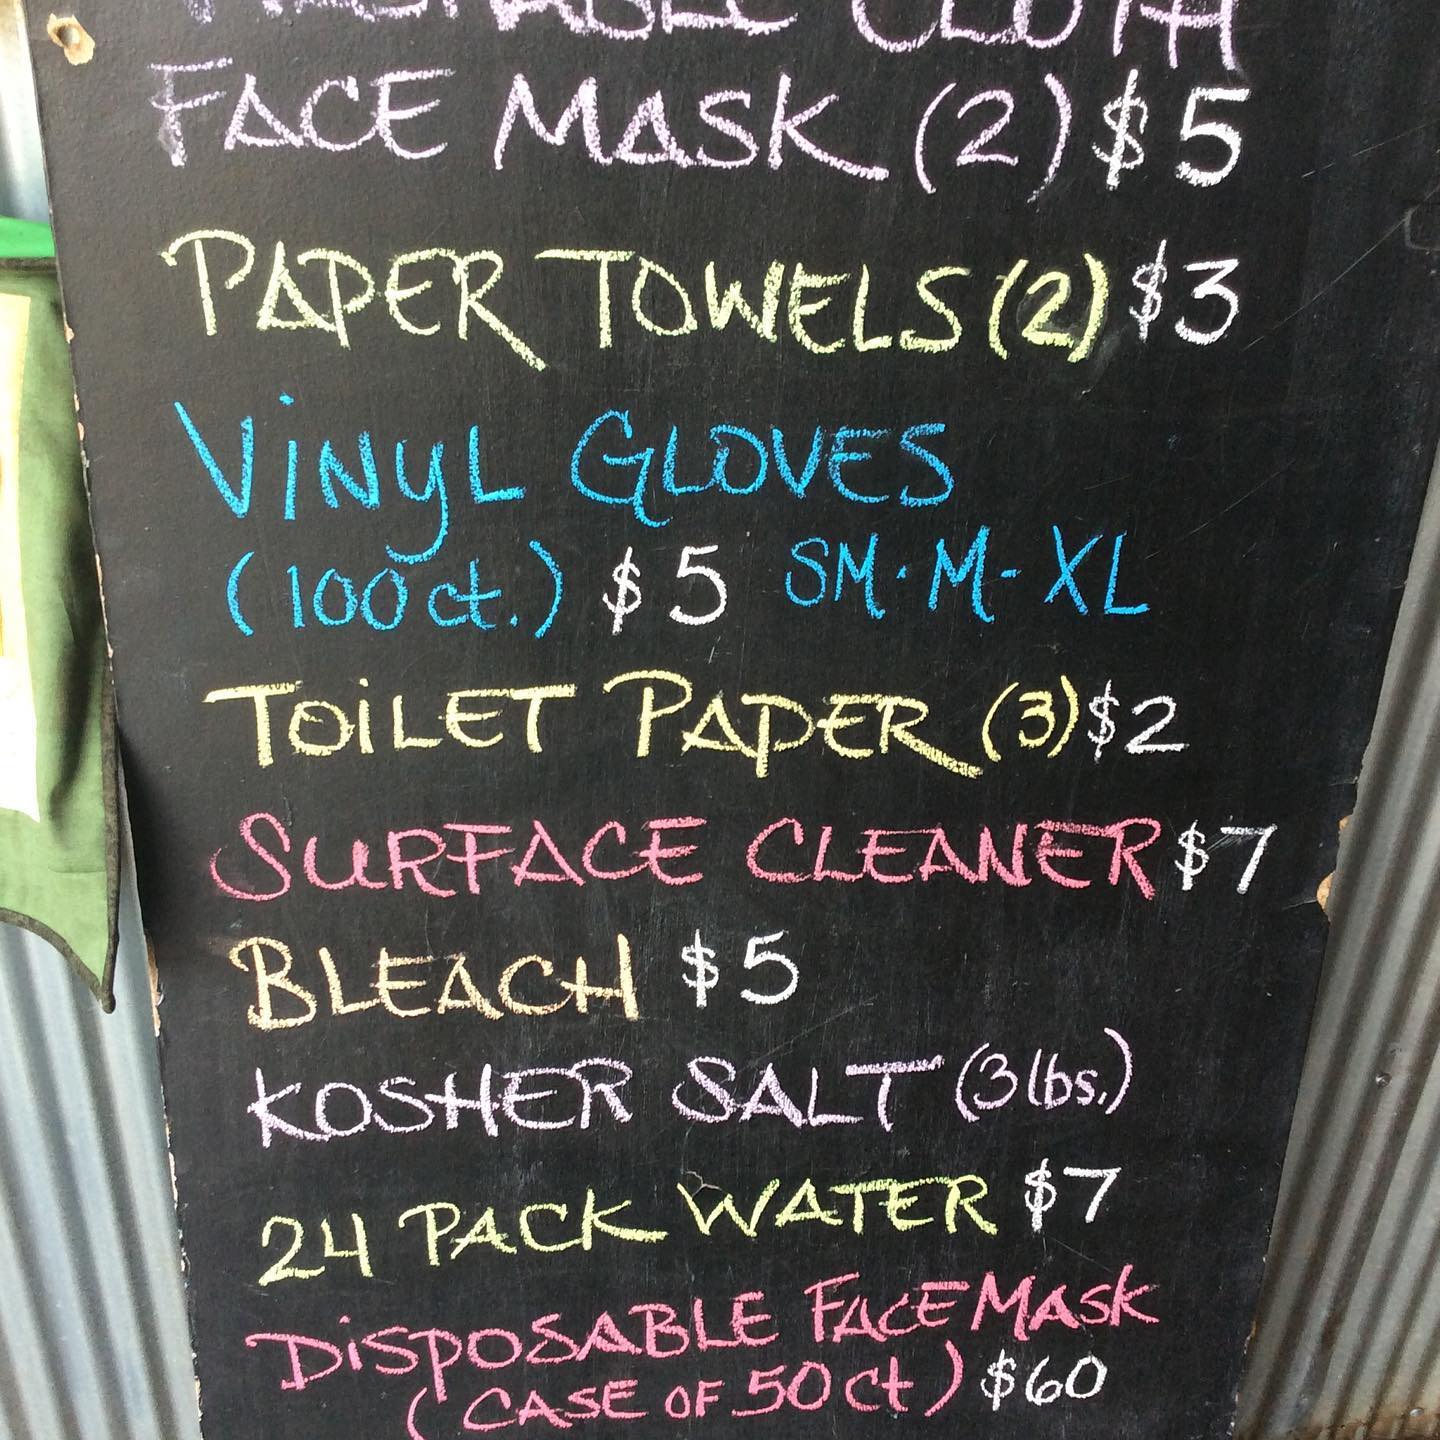 WASHABLE CLOTH
FACE MASK (2) $5
PAPER TOWELS (2) $3
ViNyL GLOVES
(100 ct.) $5 SM·M-XL
TOiLET PAPER (3) $2
SURFACE CLEANER $7
BLEACH $5
KOSHER SALT (3 lbs.)
24 PACK WATER $7
DiSPOSABLE FACE MASK
(CASE OF 50 ct) $60